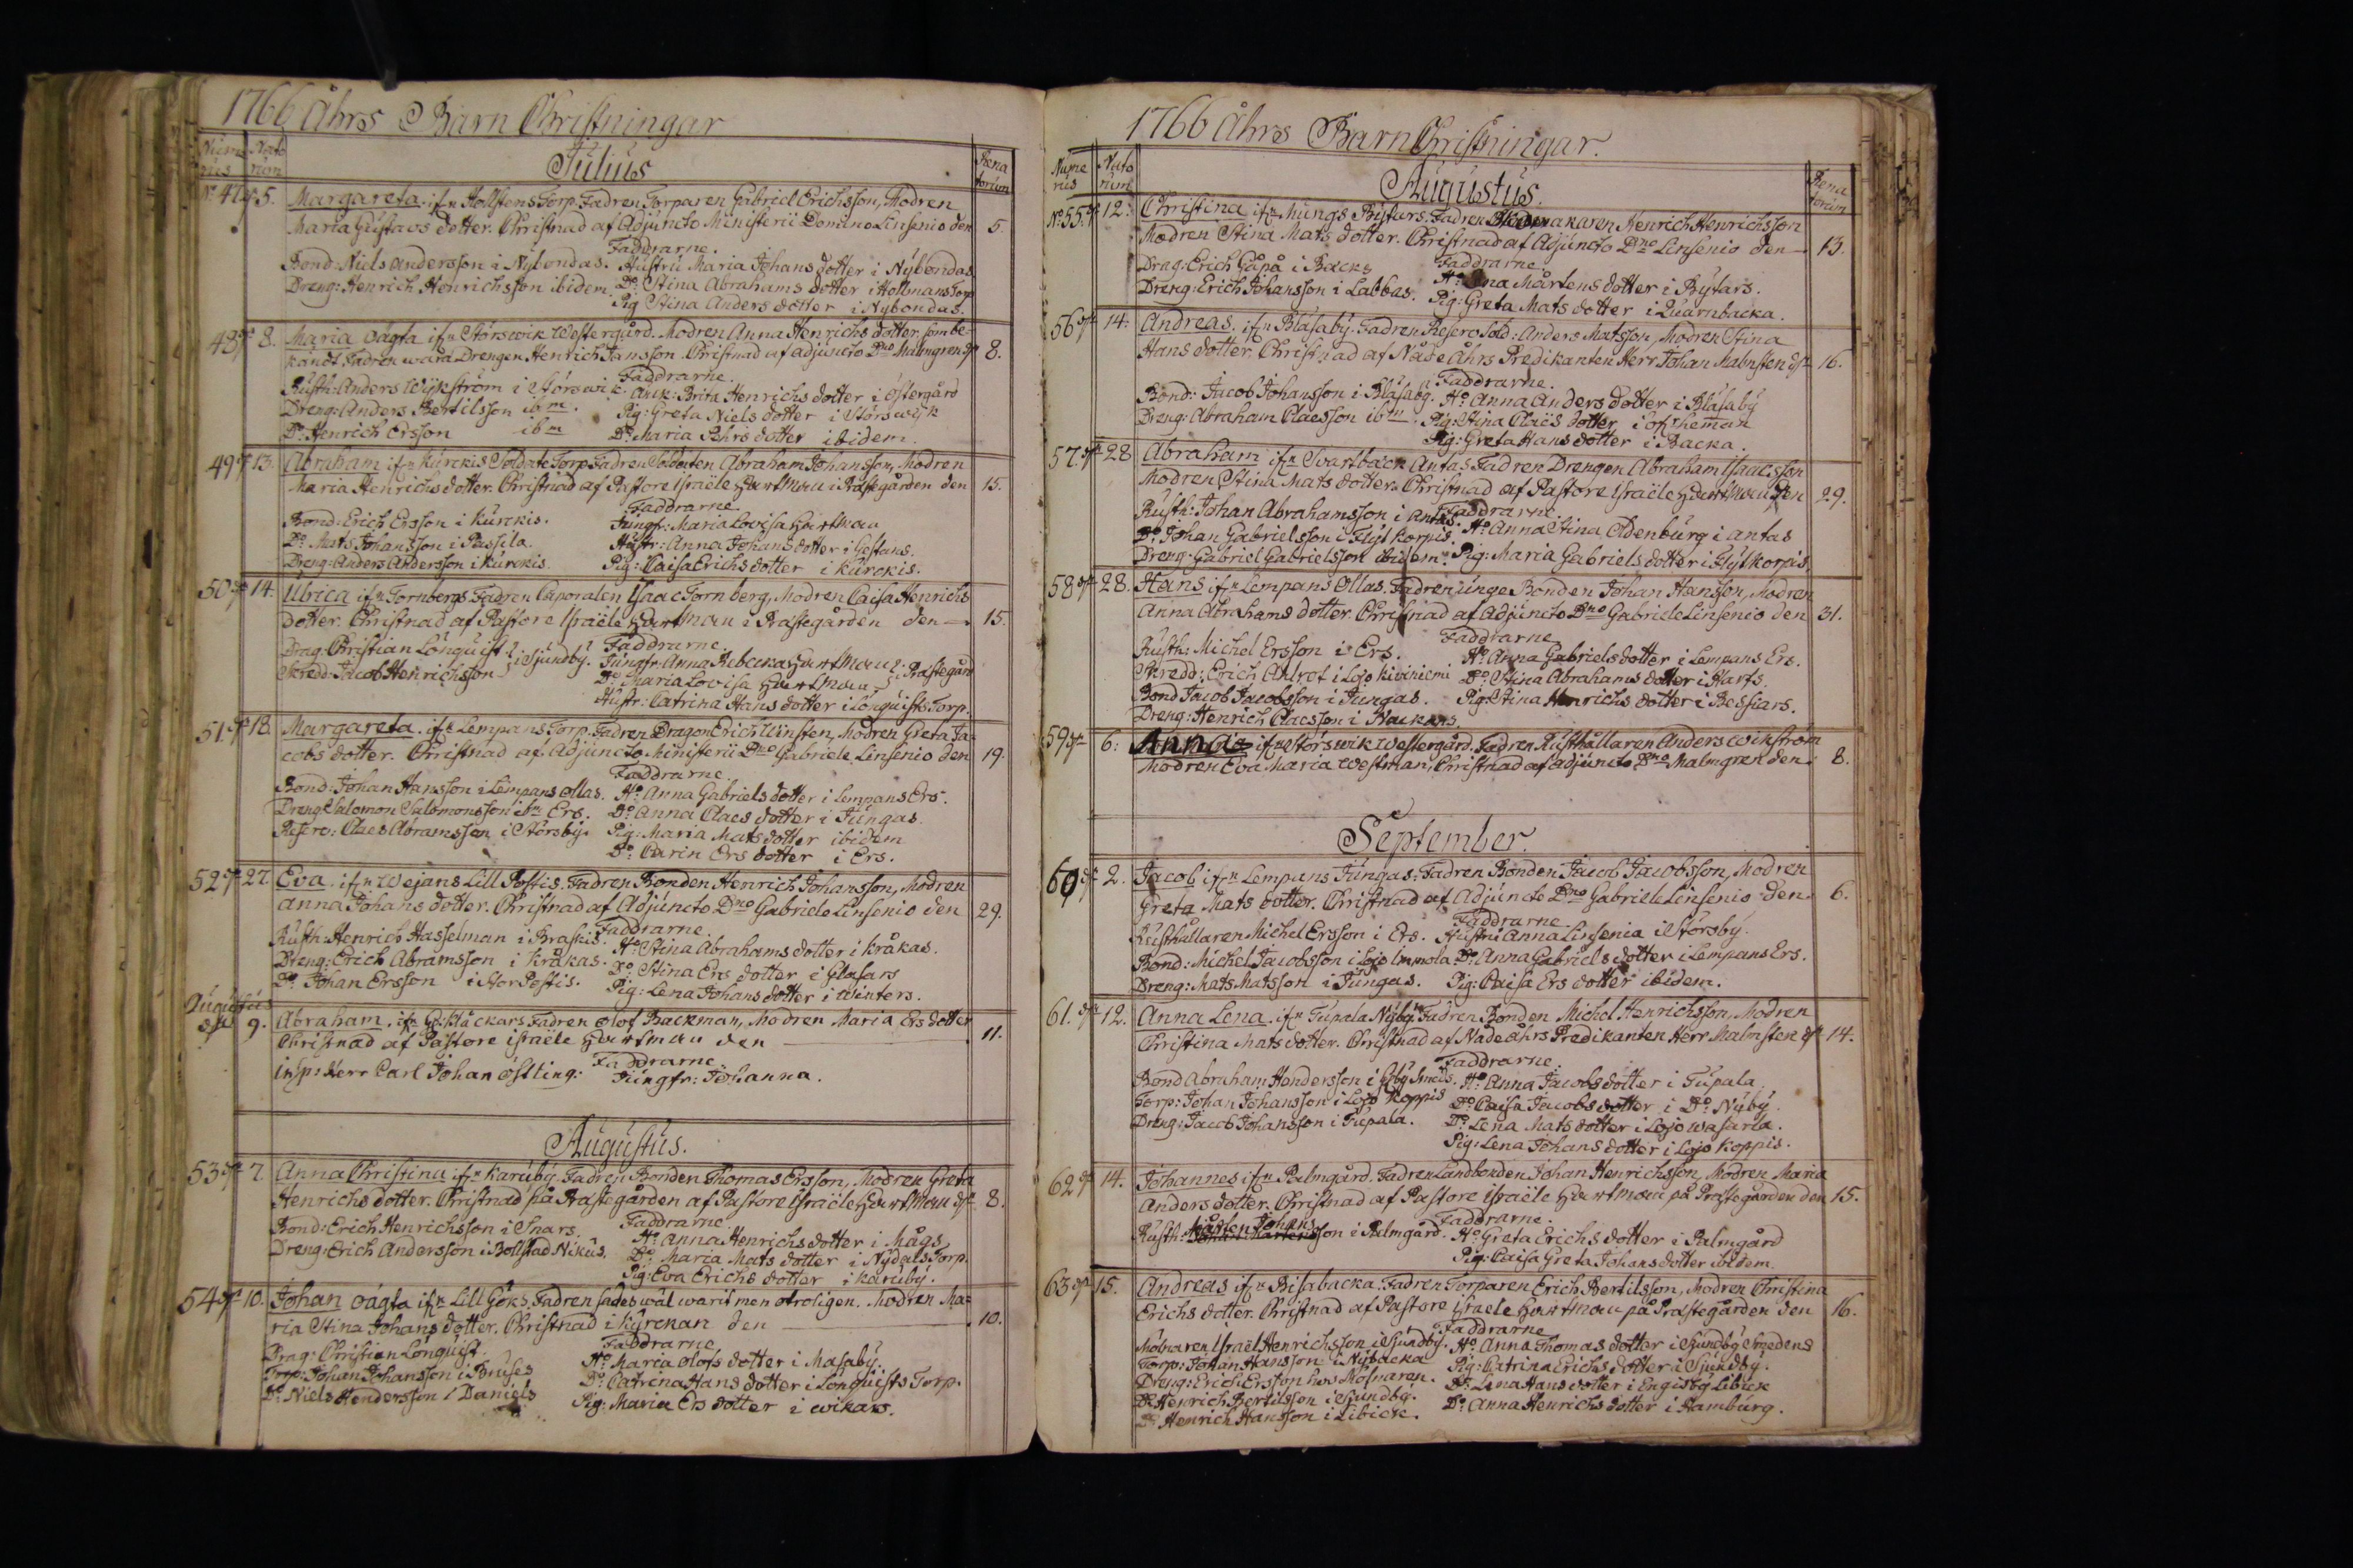 1766 Åhrs Barn Christningar
Nume rus
Nato rum
Julius
Rena torum
No 47 5. Margareta ifrn Hollstens Torp. Fadren Torparen Gabriel Erichsson, Modren
Maria Gustavs dotter. Christnad af Adjuncto Ministerii Domino Linsenio den 5.
Faddrarne.
Bond: Niels Andersson i Nybondas. Hustru Maria Johans dotter i Nybondas
Dreng: Henrich Henrichsson ibidem. Do Stina Abrahams dotter i Hollmans Torp
Pig Stina Anders dotter i Nybondas.
48 8. Maria oägta ifrn Störswik Westergård. Modren Anna Henrichs dotter, som be-
kändt Fadren wara Drengen Henrich Jansson. Christnad af adjuncto Dno Malmgren 8.
Faddrarne.
Rusth: Anders Wijkström i Störswik. Änk: Brita Henrichs dotter i Östergård
Dreng: Anders Bertilsson ibm. Pig: Greta Niels dotter i Störswijk
Do Henrich Ersson ibm Do Maria Pehrs dotter ibidem.
49 13. Abraham ifrn Kurckis Soldate Torp. Fadren Soldaten Abraham Johansson, Modren
Maria Henrichs dotter. Christnad af Pastore Israële Hartman i Prästegården den 15.
Faddrarne
Bond: Erich Ersson i Kurckis. Jungf: Maria Lovisa Hartman
Do Mats Johansson i Passila. Hustr: Anna Johans dotter i Gestans.
Dreng: Anders Andersson i Kurckis. Pig: Caisa Erichs dotter i Kurckis.
50 14. Ulrica ifrn Tornbergs Fadren Caporalen Isaac Tornberg, Modren Caisa Henrichs
dotter. Christnad af Pastore Israële Hartman i Prästegården den 15.
Faddrarne.
Drag: Christian Lönquist i Sjundby. Jungfr: Anna Rebecka Hartman i Prästegård
Skredd: Jacob Henrichsson Do Maria Lovisa Hartman
Hustr: Catrina Hans dotter i Lönquists Torp.
51. 18. Margareta. ifrn Lempans Torp. Fadren Dragon Erich Winsten, Modren Greta Ja=
cobs dotter. Christnad af Adjuncto Ministerii Dno Gabriele Linsenio den 19.
Faddrarne
Bond: Johan Hansson i Lempans Ollas. Ho Anna Gabriels dotter i Lempans Ers.
Dreng: Salomon Salomonsson ibm Ers. Do Anna Claes dotter i Jungas.
Reserv: Claes Abramsson i Störsby. Pig: Maria Mats dotter ibidem
Do Carin Ers dotter i Ers.
52 27. Eva. ifrn Wejans Lill Postis. Fadren Bonden Henrich Johansson, Modren
Anna Johans dotter. Christnad af Adjuncto Dno Gabriele Linsenio den 29.
Faddrarne.
Rusth: Henrich Hasselman i Braskis. Ho Stina Abrahams dotter i Kråkas.
Dreng: Erich Abramsson i Kråkas. Do Stina Ers dotter i Glasars
Do Johan Ersson i Stor Postis. Pig: Lena Johans dotter i Winters.
Augustus
9. Abraham. ifrn Fadren Olof Backman, Modren Maria Ers dotter
Christnad af Pastore Israële Hartman den 11.
Faddrarne
Insp: Herr Carl Johan Östling: Jungfr: Johanna.
Augustus.
53 7. Anna Christina ifrn Karuby. Fadren Bonden Thomas Ersson, Modren Greta
Henrichs dotter. Christnad på Prästegården af Pastore Israële Hartman 8.
Faddrarne
Bond: Erich Henrichsson i Snars. Ho Anna Henrichs dotter i Mågs
Dreng: Erich Andersson i Bollstad Nikus. Do Maria Mats dotter i Nydals Torp.
Pig: Eva Erichs dotter i Karuby.
54 10. Johan oägta ifrn Lill Göks. Fadren sades wäl warit men otroligen. Modren Ma=
ria Stina Johans dotter. Christnad i Kyrckan den 10.
Faddrarne
Drag: Christian Lönquist. Ho Maria Olofs dotter i Masaby.
Torp: Johan Johansson i Bruses Do Catrina Hans dotter i Lönquists Torp.
Dr: Niels Hendersson i Daniels Pig: Maria Ers dotter i Wikars.
1766 Åhrs Barn Christningar.
Nume rus
Nato rum
Augustus.
Rena torum
No 55. 12: Christina ifrn Mungs Rytars. Fadren Henrich Henrichsson
Modren Stina Mats dotter. Christnad af Adjuncto Dno Linsenio den 13.
Faddrarne
Drag: Erich Gåpå i Backs Ho Mårtens dotter i Rytars.
Dreng: Erich Johansson i Labbas. Pig: Greta Mats dotter i Quarnbacka.
56 14: Andreas. ifrn Blåsaby. Fadren Reserv Sold: Anders Matsson, Modren Stina
Hans dotter. Christnad af Nåde Åhrs Predikanten Herr Johan Malmsten 16.
Faddrarne.
Bond: Jacob Johansson i Blåsaby. Ho Anna Anders dotter i Blåsaby
Dreng: Abraham Claesson ibm Pig: Stina Claës dotter
Pig: Greta Hans dotter i Backa.
57. 28 Abraham ifrn Svartbäck Antas Fadren Drengen Abraham Isaacsson
Modren Stina Mats dotter. Christnad af Pastore Israële Hartman den 29.
Faddrarne
Rusth: Johan Abrahamsson i Antas. Ho Anna Stina Oldenburg i Antas
Do Johan Gabrielsson i Flyt Korpis.
Dreng: Gabriel Gabrielsson ibidem. Pig: Maria Gabriels dotter i Flytkorpis.
58 28. Hans ifrn Lempans Ollas. Fadren unge Bonden Johan Hansson, Modren
Anna Abrahams dotter. Christnad af Adjuncto Dno Gabriele Linsenio den 31.
Faddrarne
Rusth: Michel Ersson i Ers. Ho Anna Gabriels dotter i Lempans Ers.
Skredd: Erich Androf i Lojo Kiviniemi Do Stina Abrahams dotter i Harfs.
Bond Jacob Jacobsson i Jungas. Pig: Stina Henrichs dotter i Bessiars.
Dreng: Henrich Claesson i Nackans.
59 6: Anna ifrn Störswik Westergård. Fadren Rusthållaren Anders Wikström
Modren Eva Maria Westman, Christnad af adjuncto Dno Malmgren den 8.
September.
60 2. Jacob ifrn Lempans Jungas. Fadren Bonden Jacob Jacobsson, Modren
Greta Mats dotter. Christnad af Adjuncto Dno Gabriele Linsenio den 6.
Faddrarne
Rusthållaren Michel Ersson i Ers. Hustru Anna Linsenia i Störsby.
Bond: Michel Jacobsson i Lojo Immola Do Anna Gabriels dotter i Lempans Ers.
Dreng: Mats Matsson i Jungas. Pig: Caisa Ers dotter ibidem.
61. 12. Anna Lena. ifrn Tupala Nyby. Fadren Bonden Michel Henrichsson, Modren
Christina Mats dotter. Christnad af Nåde åhrs Predikanten Herr Malmsten 14.
Faddrarne.
Bond Abraham Hendersson i Smeds. Ho Anna Jacobs dotter i Tupala
Torp: Johan Johansson i Lojo Koppis Do Caisa Jacobs dotter i Do Nyby.
Dreng: Jacob Johansson i Tupala. Do Lena Mats dotter i Lojo Wasarla.
Pig: Lena Johans dotter i Lojo Koppis.
62 14. Johannes ifrn Palmgård. Fadren Landbonden Johan Henrichsson, Modren Maria
Anders dotter. Christnad af Pastore Israële Hartman på Prästegården den 15.
Faddrarne.
Rusth: Mårten Johansson i Palmgård. Ho Greta Erichs dotter i Palmgård
Pig: Caisa Greta Johans dotter ibidem.
63 15. Andreas ifrn Bisabacka. Fadren Torparen Erich Bertilsson, Modren Christina
Erichs dotter. Christnad af Pastore Israele Hartman på Prästegården den 16.
Faddrarne
Mölnaren Israel Henrichsson i Sjundby. Ho Anna Thomas dotter i Sjundby Smedens
Torp: Johan Hansson i Nybacka Pig: Catrina Erichs dotter i Sjundby.
Dreng: Erich Ersson hos Mölnaren. Do Lena Hans dotter i Engisby Libick
Do Henrich Bertilsson i Sjundby. Do Anna Henrichs dotter i Hamburg.
Do Henrich Hansson i Libick.